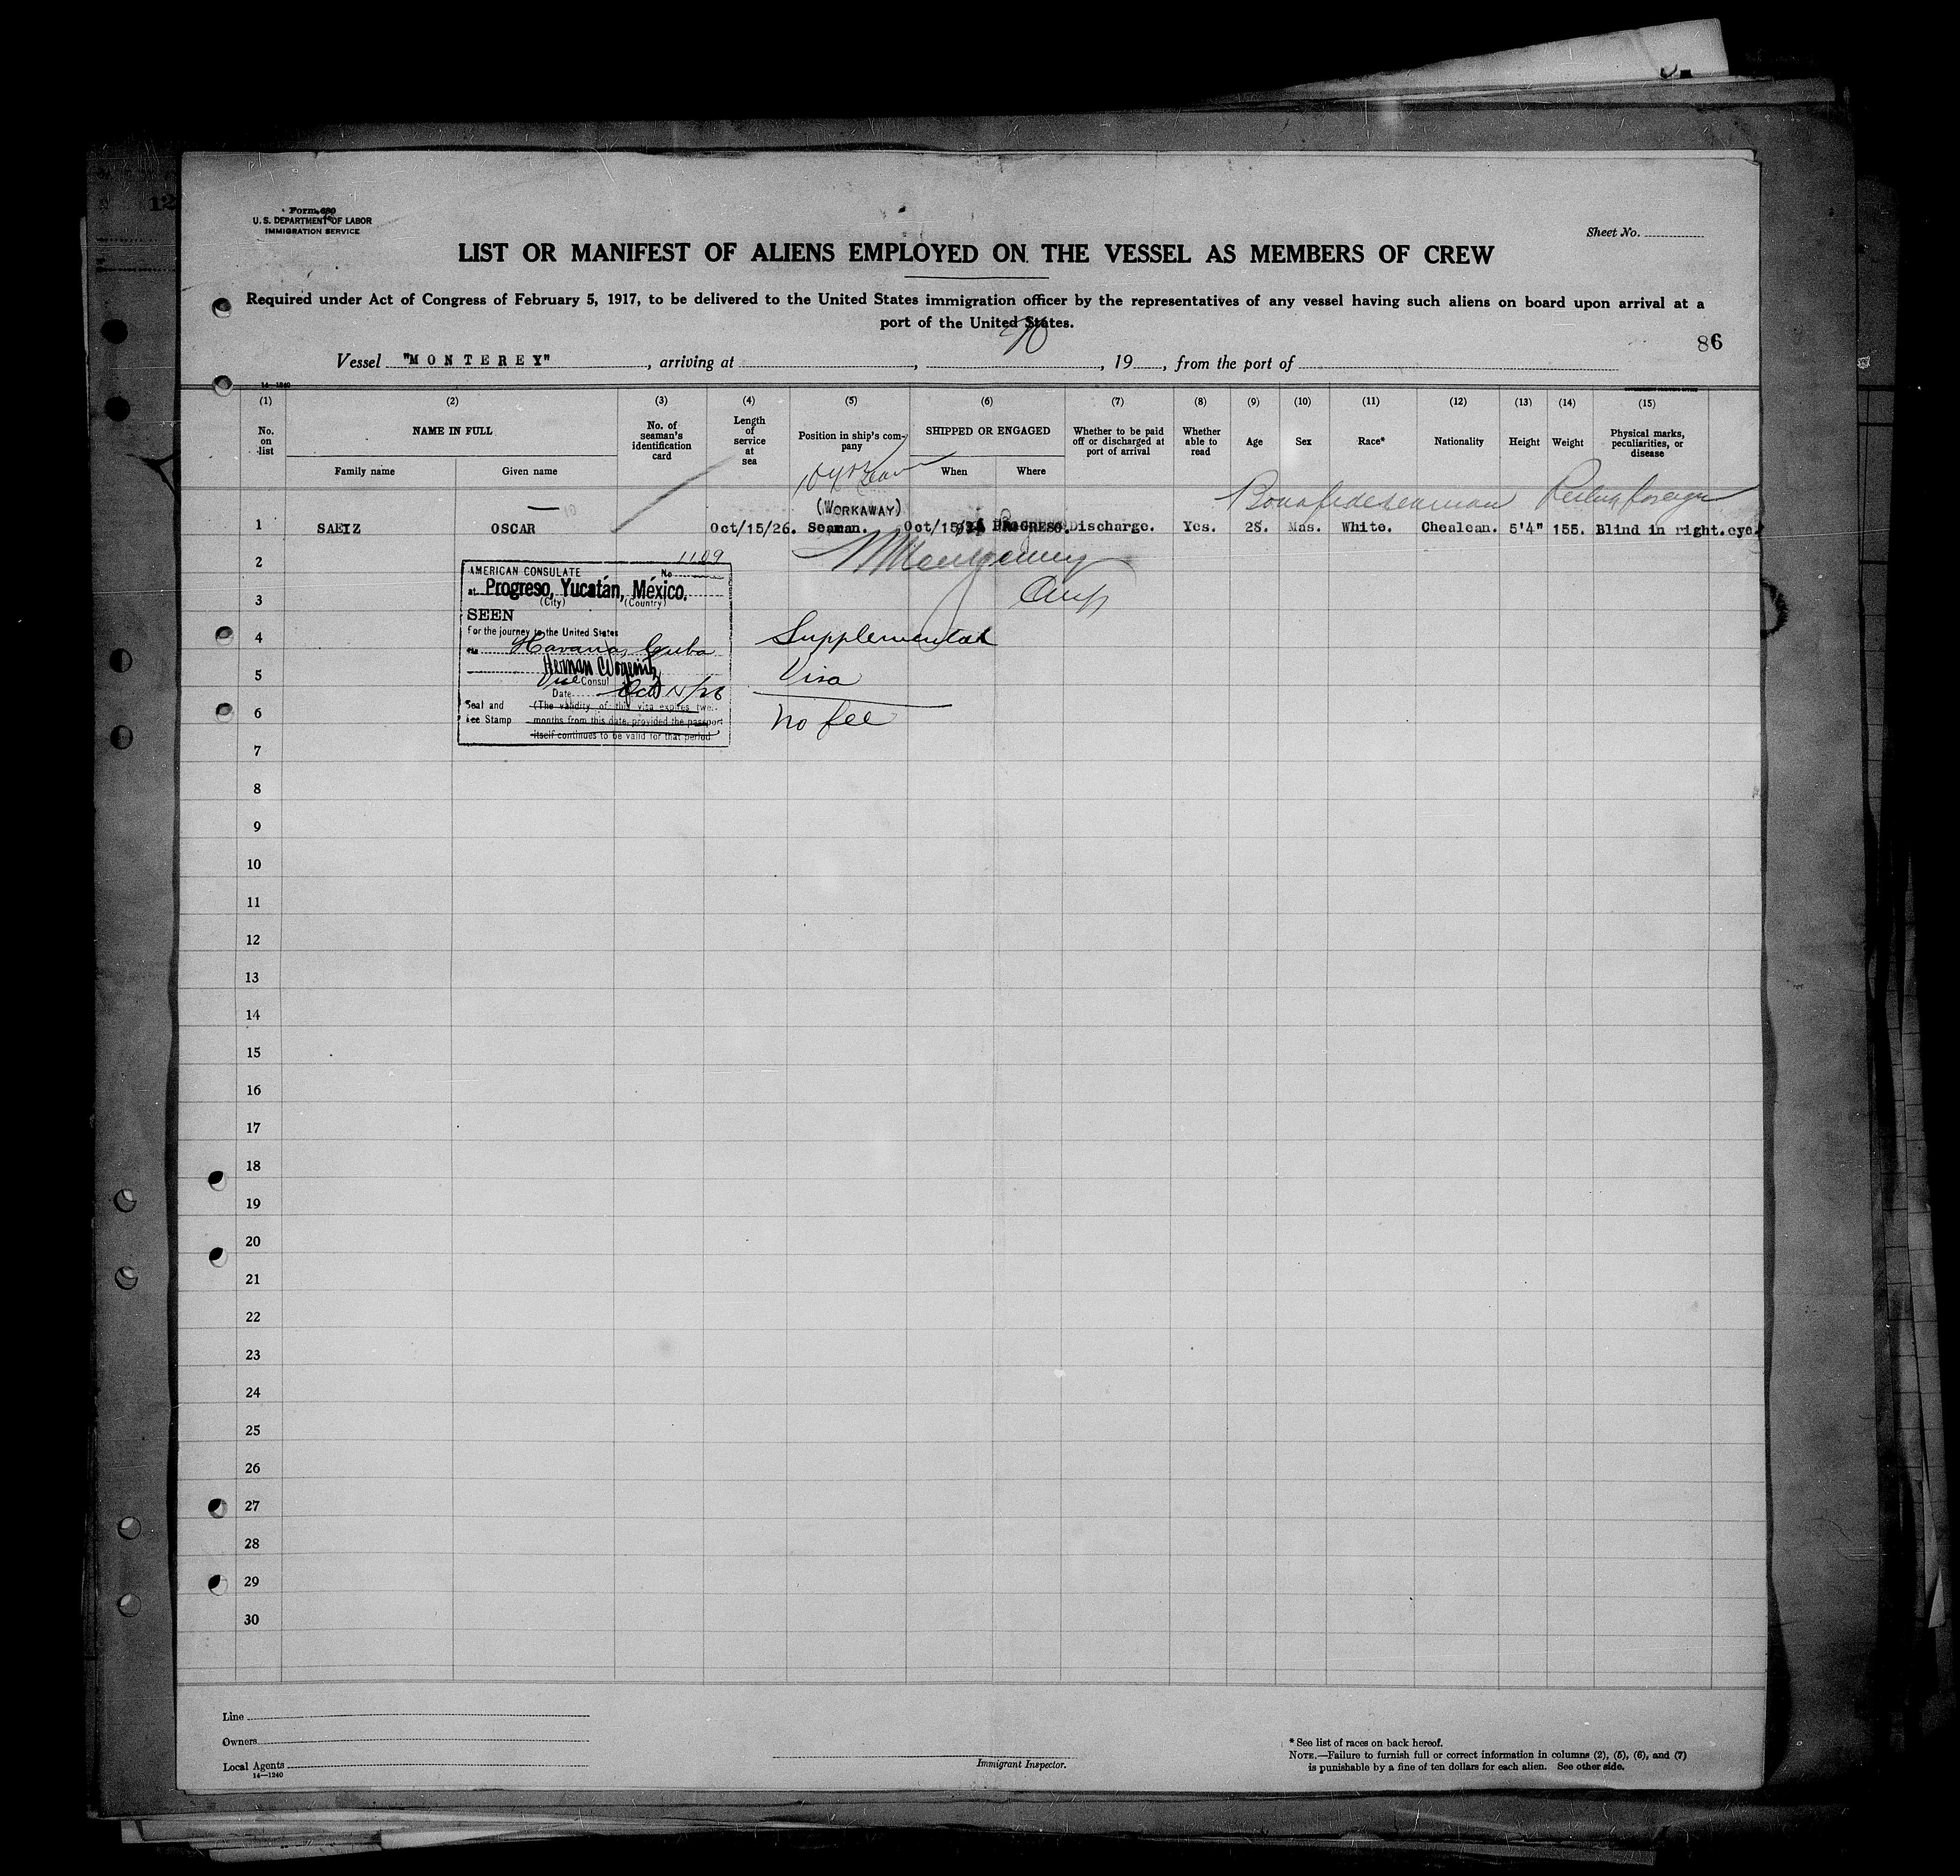 12
Form 680
U. S. DEPARTMENT OF LABOR
IMMIGRATION SERVICE
Sheet No.
LIST OR MANIFEST OF ALIENS EMPLOYED ON THE VESSEL AS MEMBERS OF CREW
Required under Act of Congress of February 5, 1917, to be delivered to the United States immigration officer by the representatives of any vessel having such aliens on board upon arrival at a
port of the United States.
86
Vessel "MONTEREY", arriving at , , 19 , from the port of
14—1240
(1) (2) (3) (4) (5) (6) (7) (8) (9) (10) (11) (12) (13) (14) (15)
No. on list
NAME IN FULL
Family name Given name
No. of seaman's identification card
Length of service at sea
Position in ship's company
SHIPPED OR ENGAGED
When Where
Whether to be paid off or discharged at port of arrival
Whether able to read
Age Sex Race* Nationality Height Weight
Physical marks, peculiarities, or disease
Bonafide seaman Reship foreign
(WORKAWAY)
1 SAEIZ OSCAR Oct/15/26. Seaman. Oct/15/26 PROGRESO. Discharge. Yes. 28. Mas. White. Chealean. 5'4" 155. Blind in right.eye.
2
3
4
5
6
7
8
9
10
11
12
13
14
15
16
17
18
19
20
21
22
23
24
25
26
27
28
29
30
AMERICAN CONSULATE No 1109
at Progreso, Yucatán, México.
(City) (Country)
SEEN
For the journey to the United States
Havana, Cuba
Vice Consul
Date Oct 15/26
Seal and Fee Stamp
(The validity of this visa expires twelve
months from this date, provided the passport
itself continues to be valid for that period
Montgomery
Supplemental
Visa
No fee
Line
Owners
Local Agents
14—1240
Immigrant Inspector.
* See list of races on back hereof.
NOTE.—Failure to furnish full or correct information in columns (2), (5), (6), and (7)
is punishable by a fine of ten dollars for each alien. See other side.